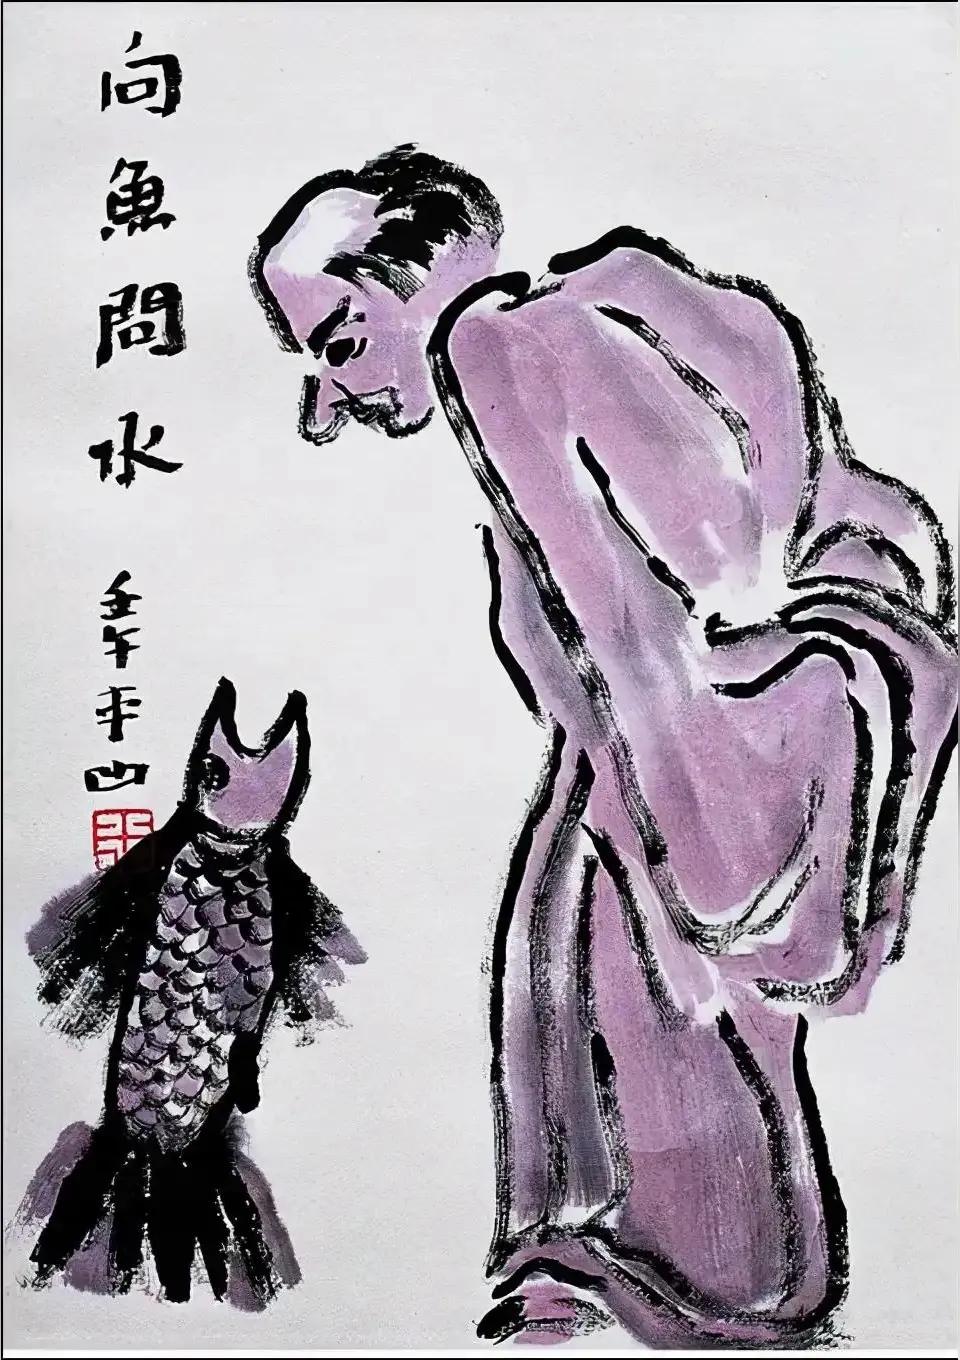 向魚問水
壬午平凹